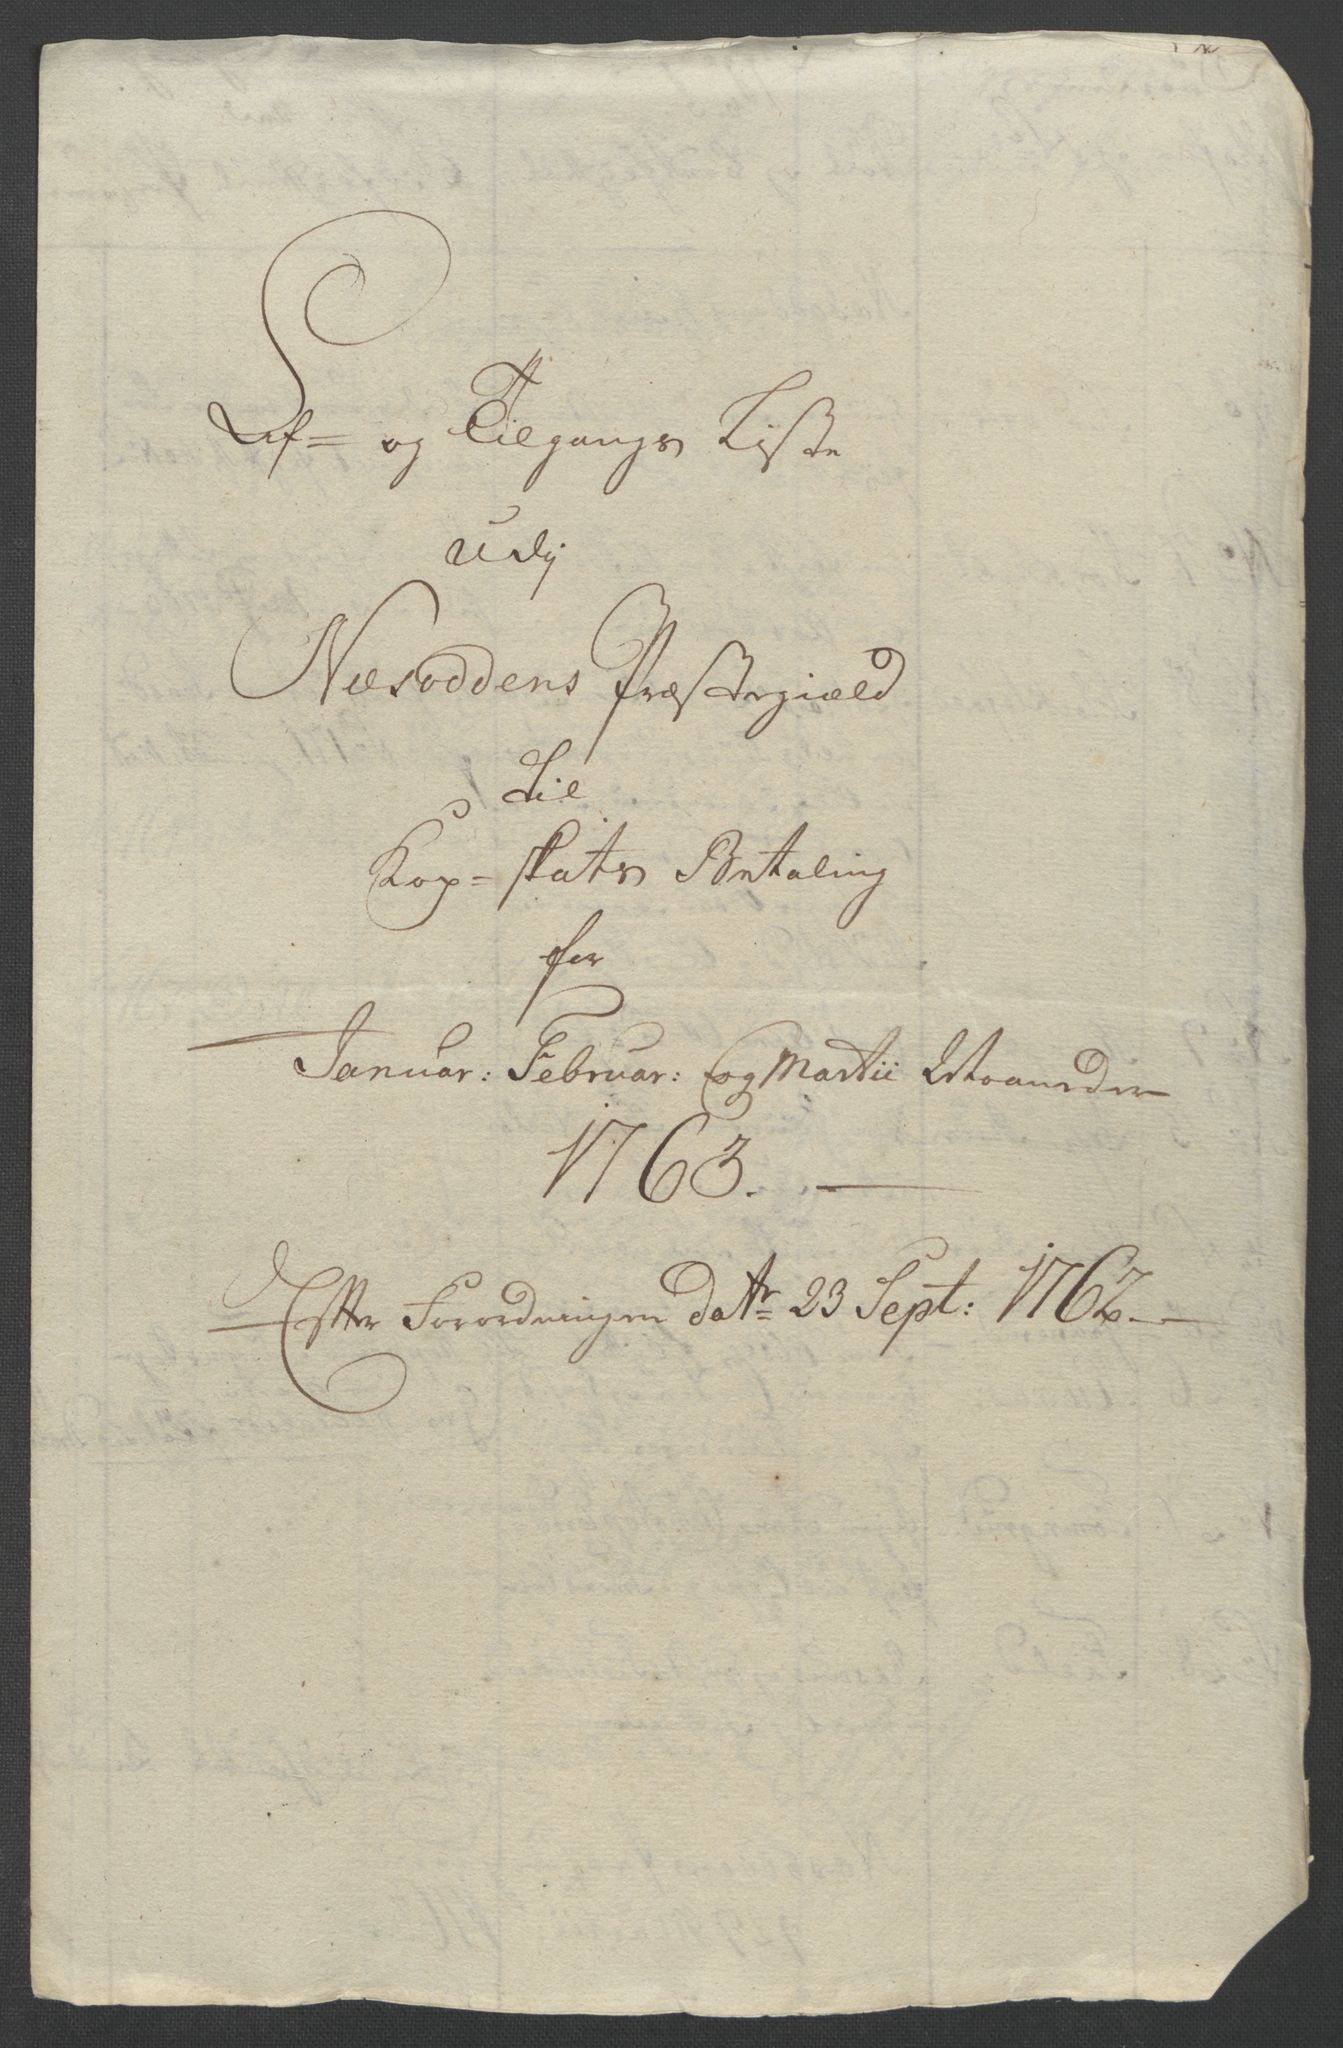 Af- og Tilgangs Liste
udj
Næsoddens Præstegiæld
til
Kop-skats Betaling
for
Januar: Februar: og Martii Maaneder
1763.
Efter Forordningen datr 23 Sept: 1762.